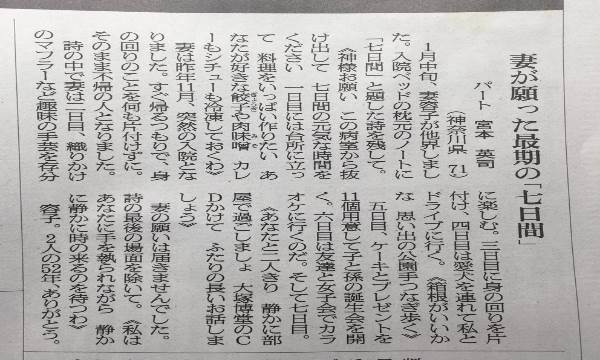 妻が願った最期の「七日間」
パート 宮本 英司
（神奈川県 71）
1月中旬、妻容子が他界しまし
た。入院ベッドの枕元のノートに
「七日間」と題した詩を残して。
《神様お願い この病室から抜
け出して 七日間の元気な時間を
ください 一日目には台所に立っ
て 料理をいっぱい作りたい あ
なたが好きな餃子や肉味噌 カレ
ーもシチューも冷凍しておくわ》
妻は昨年11月、突然の入院とな
りました。すぐ帰るつもりで、身
の回りのことを何も片付けずに。
そのまま不帰の人となりました。
詩の中で妻は二日目、織りかけ
のマフラーなど趣味の手芸を存分
に楽しむ。三日目に身の回りを片
付け、四日目は愛犬を連れて私と
ドライブに行く。《箱根がいいか
な 思い出の公園手つなぎ歩く》
五日目、ケーキとプレゼントを
11個用意して子と孫の誕生会を開
く。六日目は友達と女子会でカラ
オケに行くのだ。そして七日目。
《あなたと二人きり 静かに部
屋で過ごしましょ 大塚博堂のC
Dかけて ふたりの長いお話しま
しょう》
妻の願いは届きませんでした。
詩の最後の場面を除いて。《私は
あなたに手を執られながら 静か
に静かに時の来るのを待つわ》
容子。2人の52年、ありがとう。